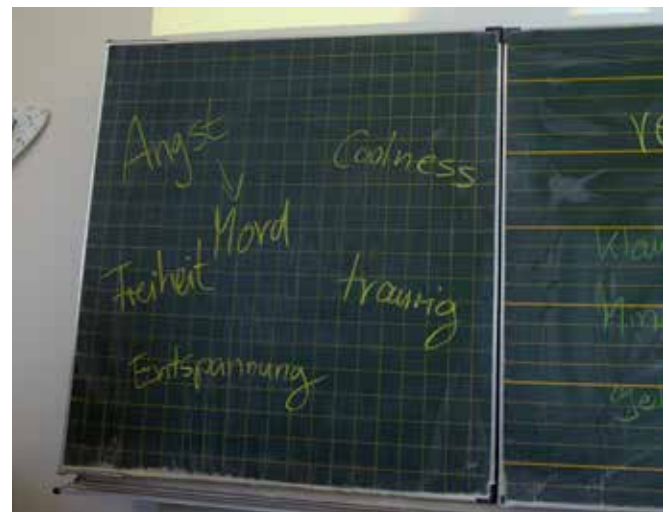 Angst
Coolness
Mord
Freiheit
traurig
Entspannung